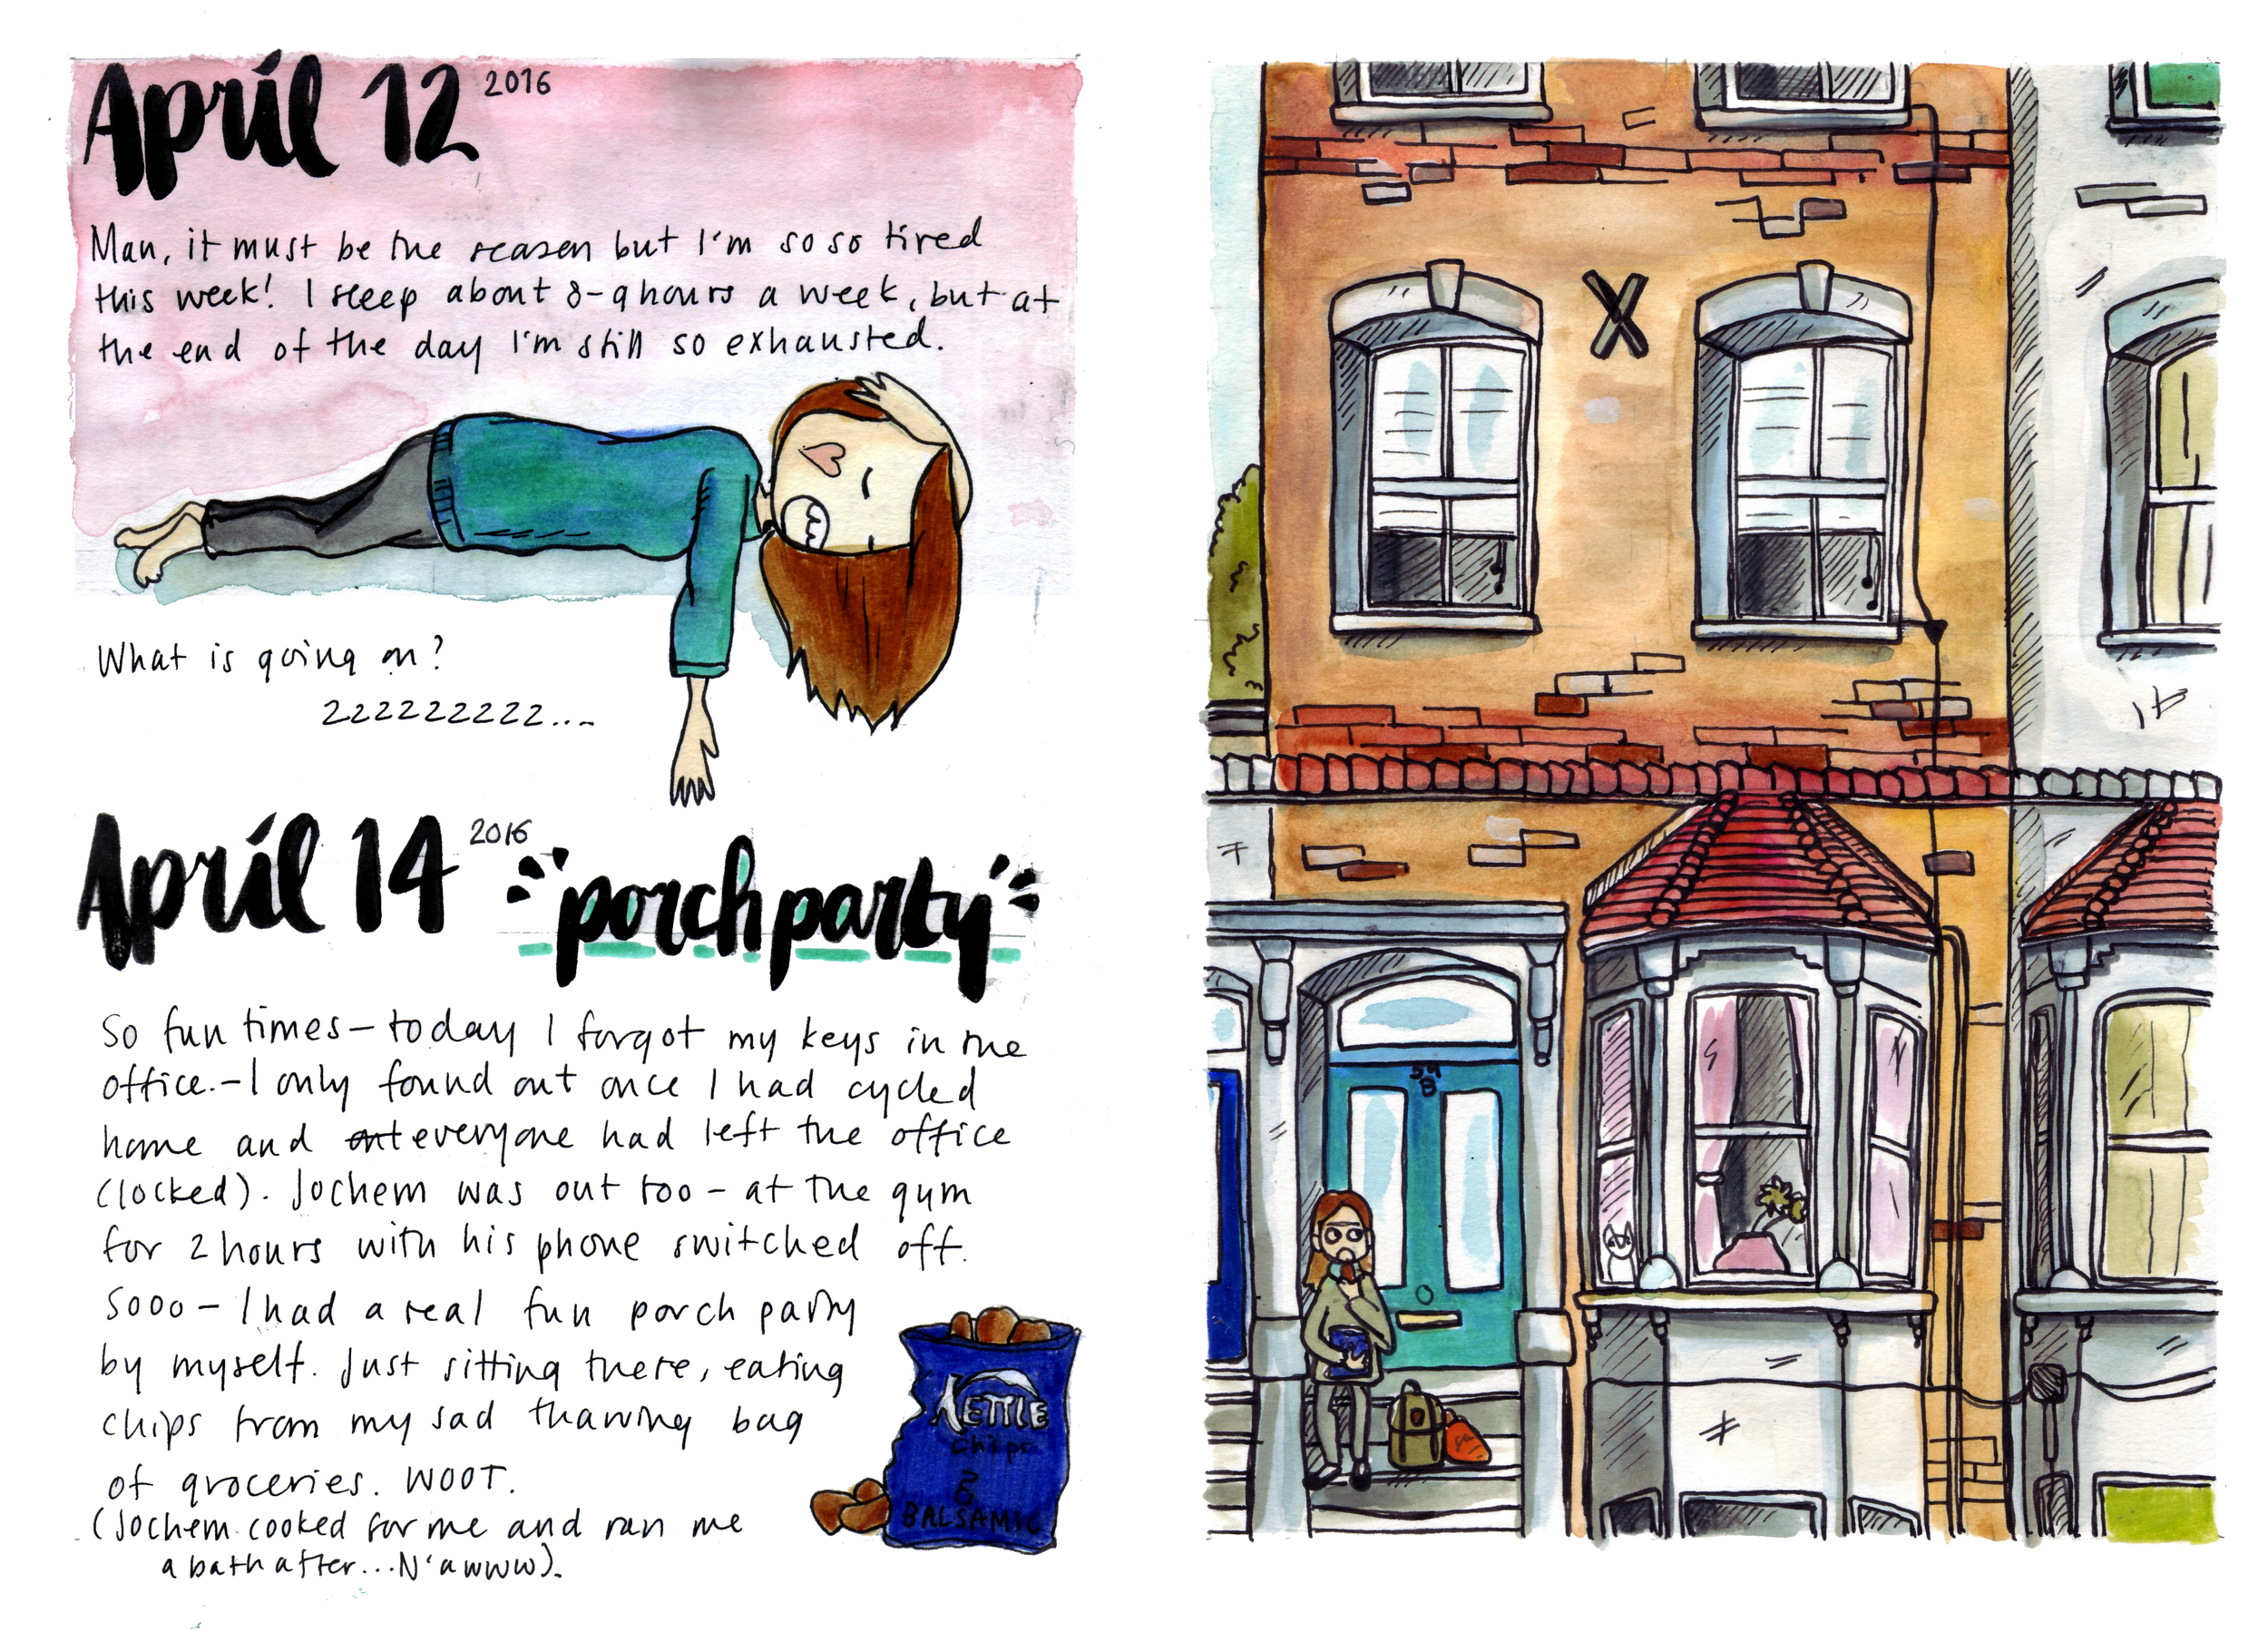 April 12 2016
Man, it must be the season but I'm so so tired
this week! I sleep about 8-9 hours a week, but at
the end of the day I'm still so exhausted.
What is going on?
zzzzzzzzzz...
April 14 2016 "porch party"
So fun times - today I forgot my keys in the
office. - I only found out once I had cycled
home and everyone had left the office
(locked). Jochem was out too - at the gym
for 2 hours with his phone switched off.
Sooo - I had a real fun porch party
by myself. Just sitting there, eating
chips from my sad thawing bag
of groceries. WOOT.
(Jochem cooked for me and ran me
a bath after...N'awww).
KETTLE
chips
&
BALSAMIC
59
B